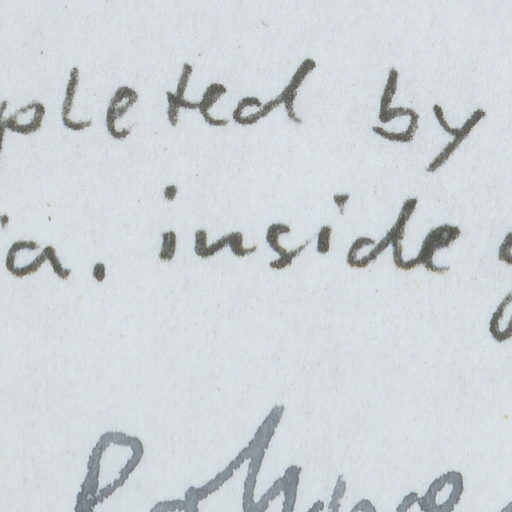 pleted by
ia. inside